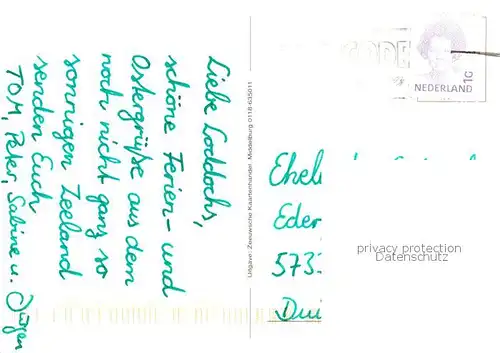 Liebe Loddochs,
schöne Ferien- und
Ostergrüße aus dem
noch nicht ganz so
sonnigen Zeeland
senden Euch
TOM, Peter, Sabine u. Jürgen
Uitgave: Zeeuwsche Kaartenhandel, Middelburg 0118-635011
CODE
NEDERLAND
1G
Ehel
Eder
573
Dui
privacy protection
Datenschutz